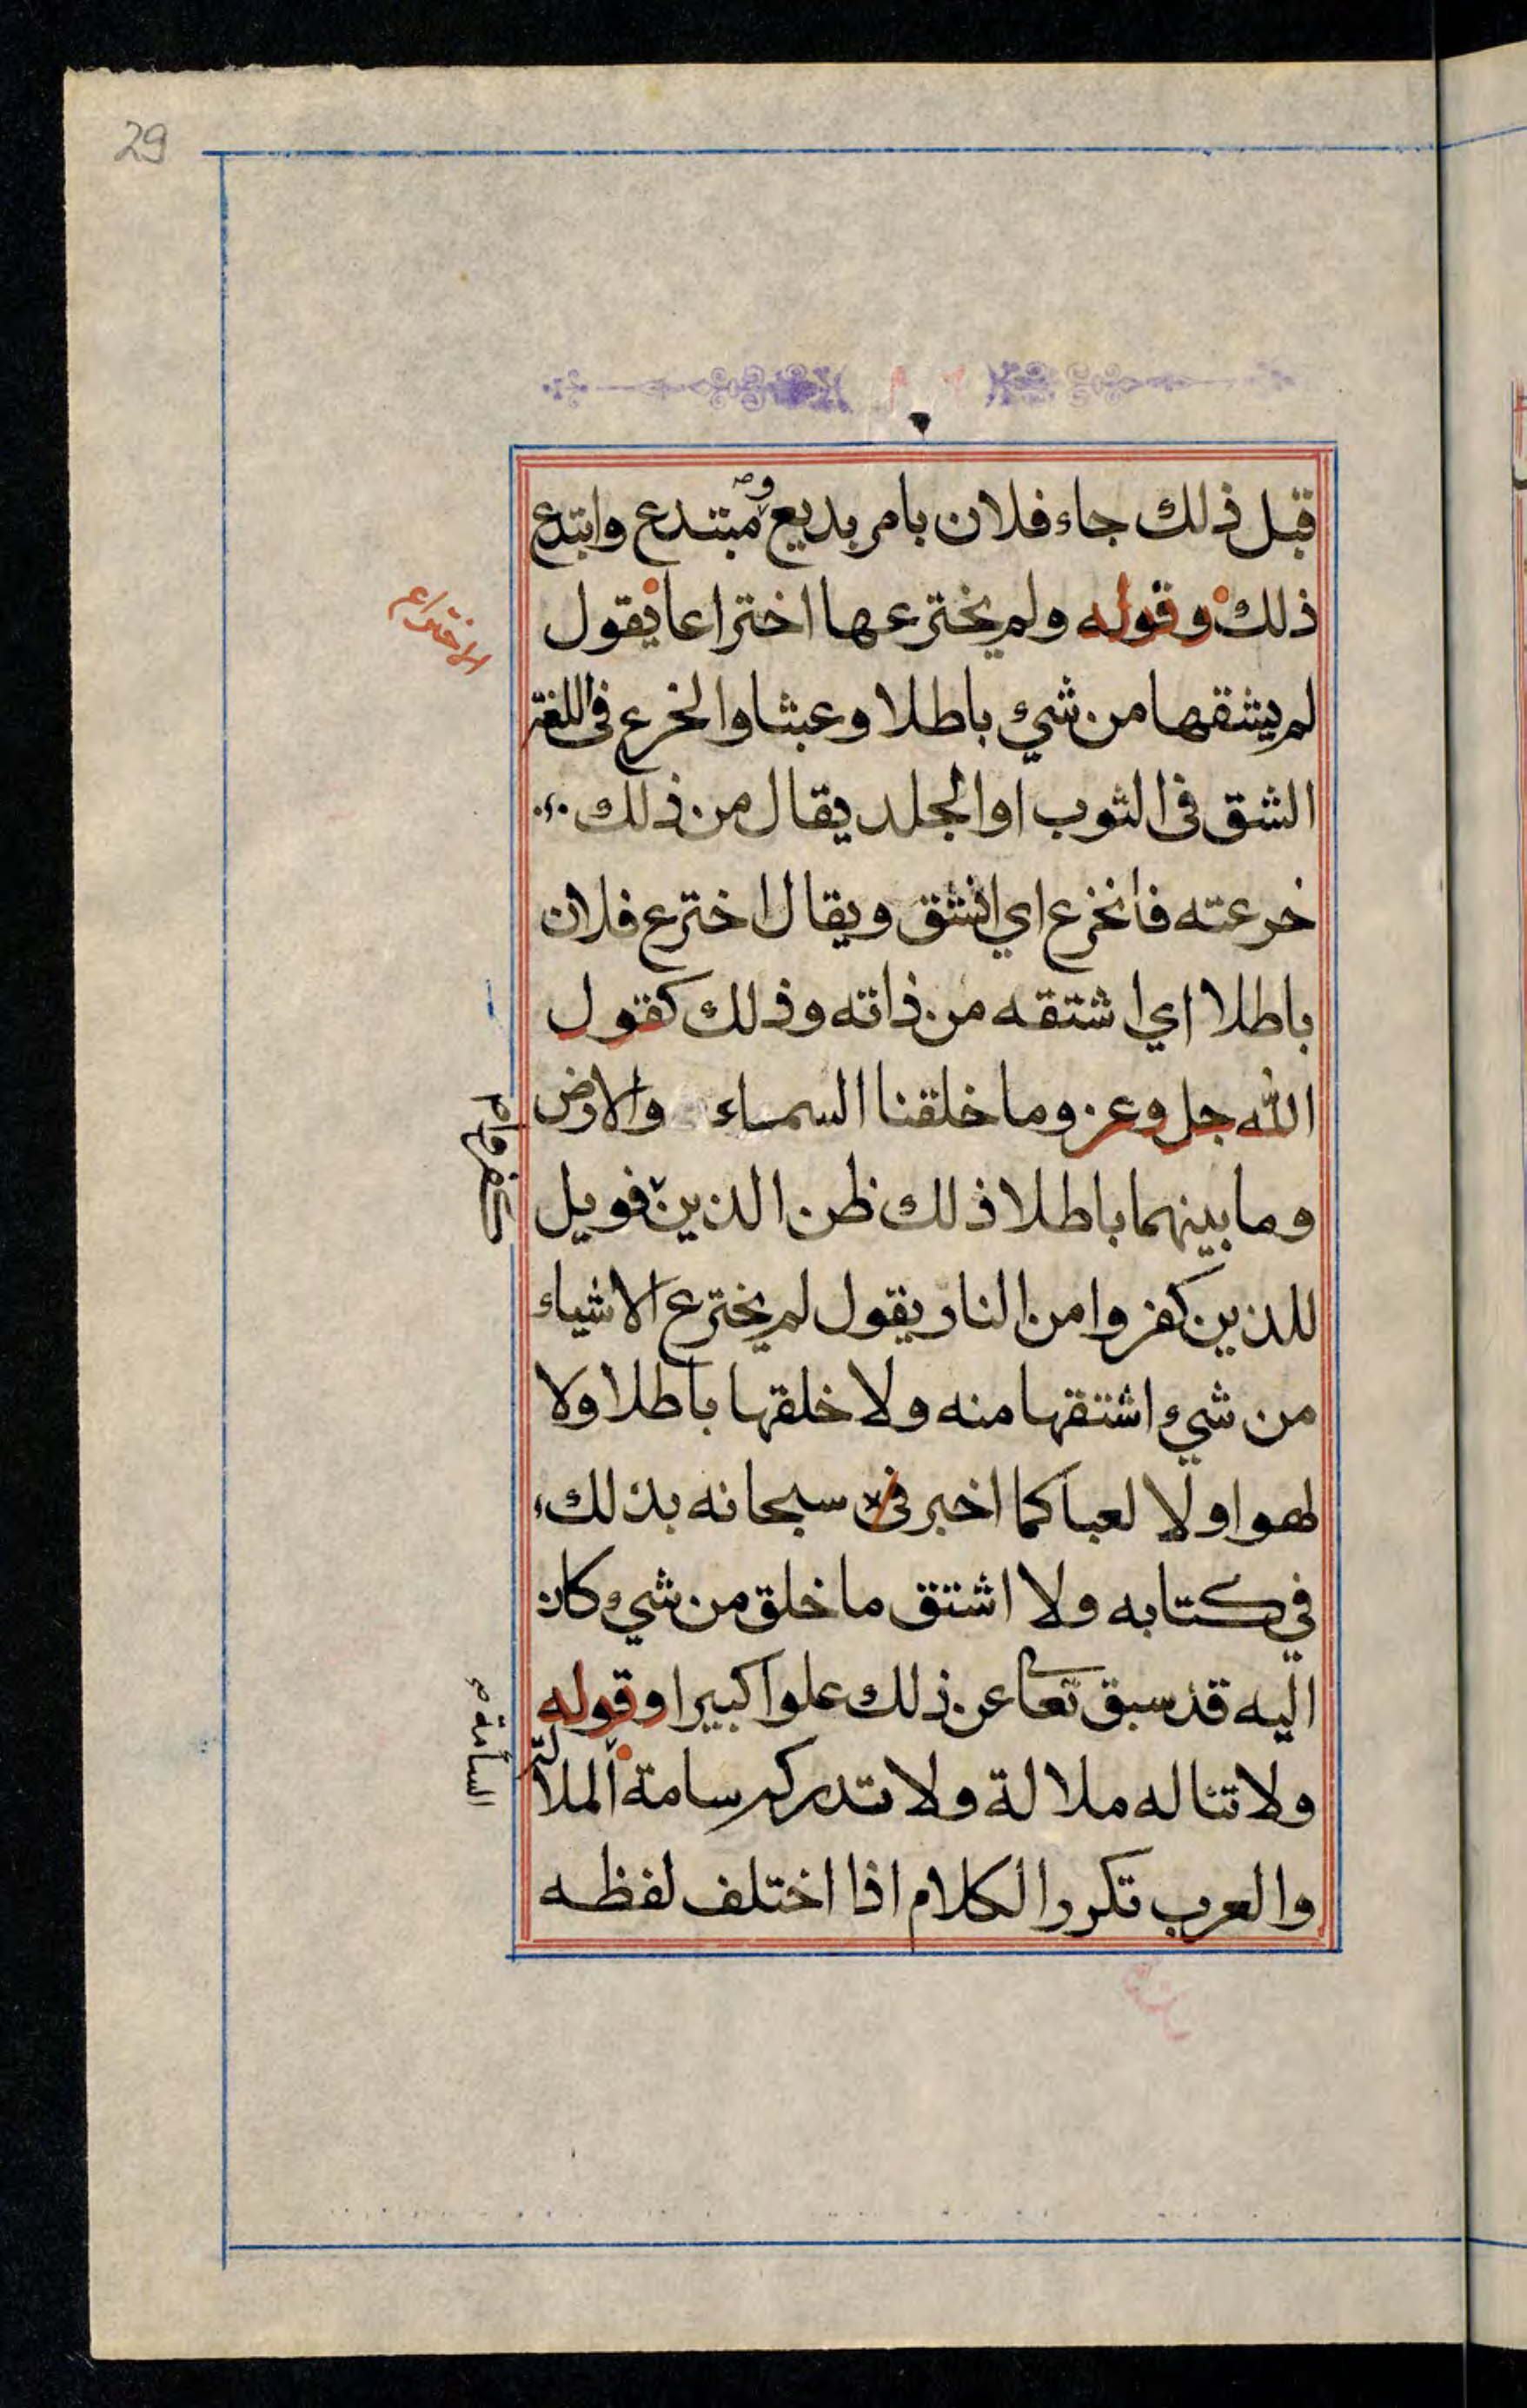 29
قبل ذلك جاء فلان بامر بديع ومبتدع وابتدع
ذلك وقوله ولم يخترعها اختراعا يقول
الاختراع
لم يشقها من شيء باطلا وعبثا والخرع في اللغة
الشق في الثوب او الجلد يقال من ذلك
خرعته فانخرع اي انشق ويقال اخترع فلان
باطلا اي اشتقه من ذاته وذلك كقول
الله جل وعز وما خلقنا السماء والارض
وما بينهما باطلا ذلك ظن الذين فويل
كفروا
للذين كفروا من النار يقول لم يخترع الاشياء
من شيء اشتقها منه ولا خلقها باطلا ولا
لهوا ولا لعبا كما اخبر في سبحانه بذلك
في كتابه ولا اشتق ما خلق من شيء كان
اليه قد سبق تعا عن ذلك علوا كبيرا وقوله
ولا تناله ملالة ولا تدركه سامة الملالة
السأمة
والعرب تكرر الكلام اذا اختلف لفظه